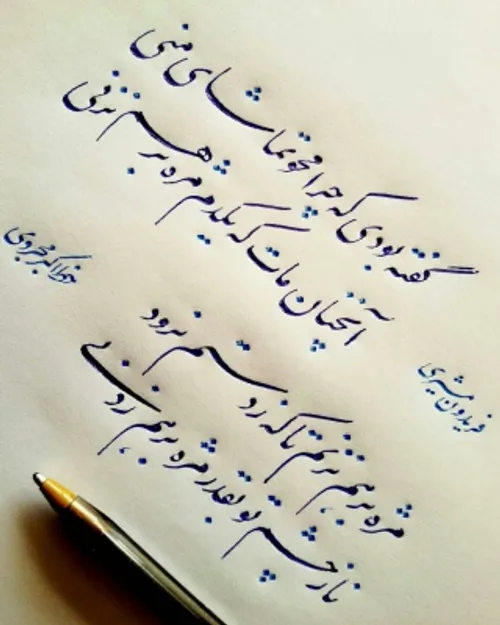 گفته بودی که چرا محو تماشای منی
آنچنان مات که یکدم مژه بر هم نزنی
خط اکبر مجردی
فریدون مشیری
مژه بر هم نزنم تا که ز دستم نرود
ناز چشم تو بقدر مژه بر هم زدنی